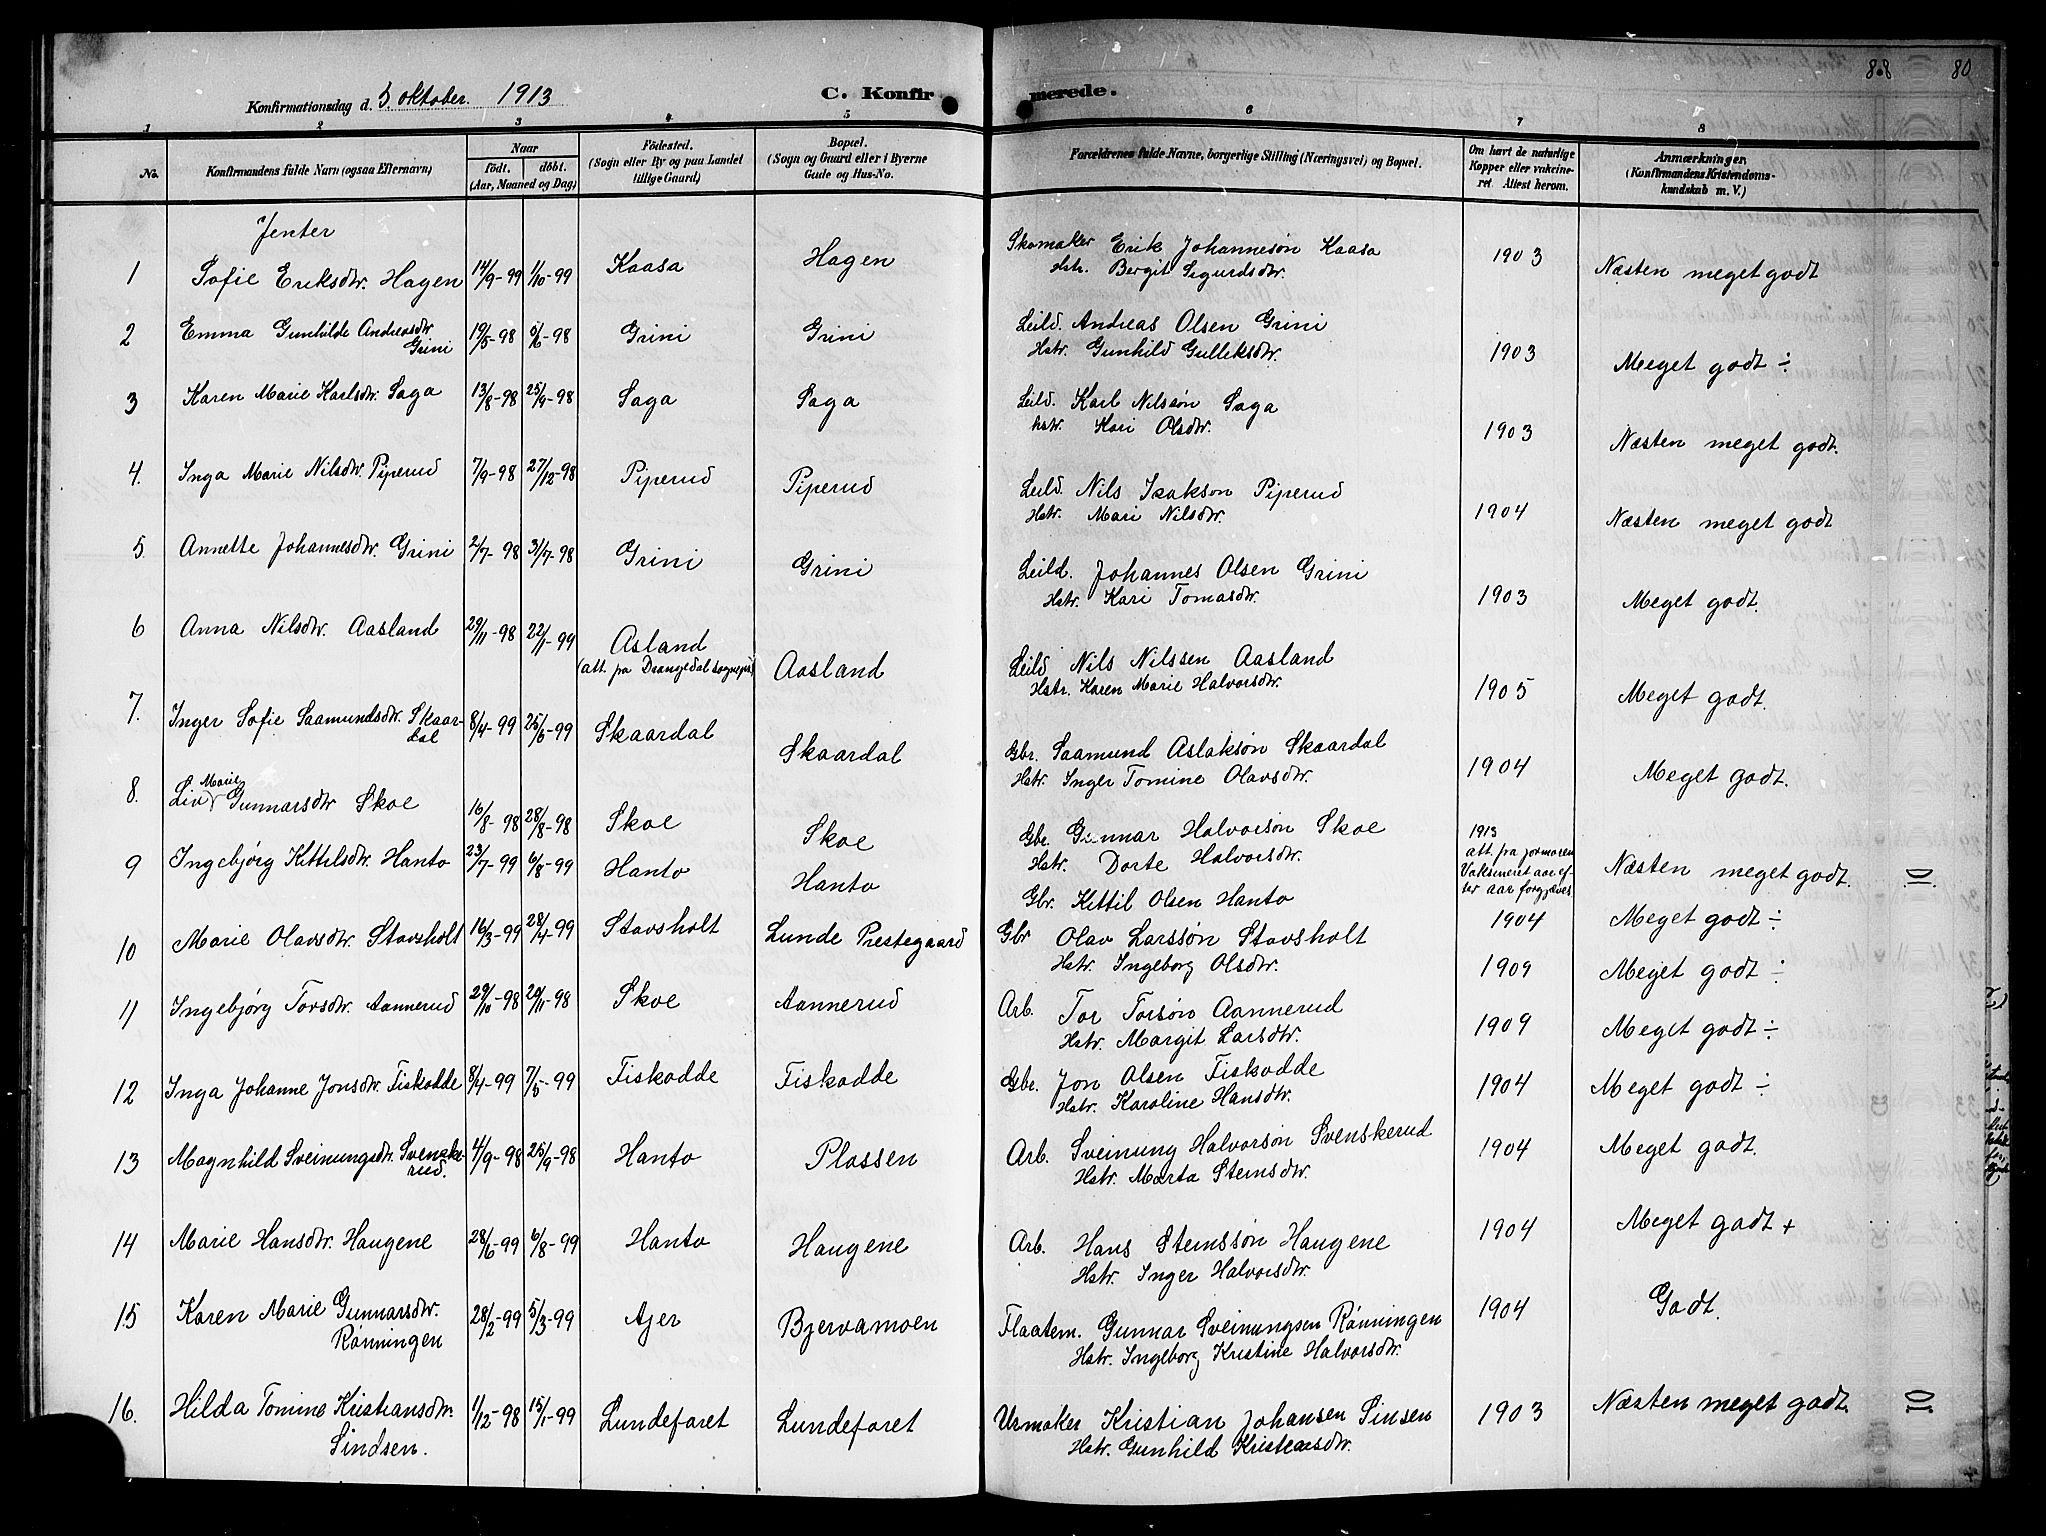 88 80
Konfirmationsdag d. 5 oktober. 1913 C. Konfirmerede.
1 2 3 4 5 6 7 8
No. Konfirmandens fulde Navn (ogsaa Efternavn) Naar født. døbt. (Aar, Maaned og Dag) Fødested. (Sogn eller By og paa Landet tillige Gaard) Bopæl. (Sogn og Gaard eller i Byerne Gade og Hus-No. Forældrenes fulde Navne, borgerlige Stilling (Næringsvei) og Bopæl. Om havt de naturlige Kopper eller vakcineret Attest herom. Anmærkninger. (Konfirmandens Kristendomskundskab m. V.)
Jenter
1 Sofie Eriksdtr. Hagen 14/9-99 1/10-99 Kaasa Hagen Skomaker Erik Johannesøn Kaasa 1903 Næsten meget godt
Hstr. Bergit Sigurdsdtr.
2 Emma Gunhilde Andreasdtr 19/5-98 5/6-98 Grini Grini Leild. Andreas Olsen Grini 1903 Meget godt ÷
Grini Hstr. Gunhild Gulliksdtr.
3 Karen Marie Karlsdtr. Saga 13/8-98 25/9-98 Saga Saga Leild. Karl Nilssøn Saga 1903 Næsten meget godt.
hstr. Kari Olsdtr.
4. Inga Marie Nilsdtr. Piperud 7/9-98 27/12-98 Piperud Piperud Leild. Nils Isakson Piperud 1904 Næsten meget godt
Hstr. Mari Nilsdtr.
5. Annette Johannesdtr. Grini 2/7-98 31/7-98 Grini Grini Leild. Johannes Olsen Grini 1903 Meget godt.
Hstr. Kari Tomasdtr.
6 Anna Nilsdtr. Aasland 29/11-98 22/1-99 Asland Aasland Leild Nils Nilssen Aasland 1905 Meget godt.
(att. fra Drangedal sognepr.) Hstr. Karen Marie Halvorsdtr.
7. Inger Sofie Saamundsdtr. Skaardal 8/4-99 25/6-99 Skaardal Skaardal Gbr. Saamund Aslaksøn Skaardal 1904 Meget godt.
Hstr. Inger Tomine Olavsdtr.
8. Liv Marie Gunnarsdtr Skoe 16/8-98 28/8-98 Skoe Skoe Gbr. Gunnar Halvorsøn Skoe 1913 Næsten meget godt.
Hstr. Dorte Halvorsdtr. att. fra jormoren Vaksineret aar efter aar forgjæves
9 Ingebjørg Kittilsdtr. Hanto 23/7-99 6/8-99 Hanto Hanto Gbr. Kittil Olsen Hanto 1904 Meget godt ÷
10 Marie Olavsdtr. Stavsholt 16/3-99 28/4-99 Stavsholt Lunde Prestegaard Gbr Olav Larssøn Stavsholt 1909 Meget godt ÷
Hstr. Ingeborg Olsdtr.
11 Ingebjørg Torsdtr. Aannerud 29/10-98 20/11-98 Skoe Aannerud Arb. Tor Torsøn Aannerud 1909 Meget godt ÷
Hstr. Margit Larsdtr.
12 Inga Johanne Jonsdtr. Fiskodde 8/4-99 7/5-99 Fiskodde Fiskodde Gbr. Jon Olsen Fiskodde 1904 Meget godt ÷
Hstr. Karoline Hansdtr.
13 Magnhild Sveinungsdtr. Svenskerud. 4/9-98 25/9-98 Hanto Plassen Arb. Sveinung Halvorsøn Svenskerud 1904 Meget godt.
Hstr. Marta Steinsdtr.
14 Marie Hansdtr. Haugene 28/6-99 6/8-99 Hanto Haugene Arb. Hans Steinssøn Haugene 1904 Meget godt +
Hstr. Inger Halvorsdtr.
15 Karen Marie Gunnarsdtr. 28/2-99 5/3-99 Ajer Bjervamoen Flaatem. Gunnar Sveinungsen Rønningen 1904 Godt.
Rønningen Hstr. Ingeborg Kristine Halvorsdtr.
16. Hilda Tomine Kristiansdtr. 1/12-98 15/1-99 Lundefaret Lundefaret Urmaker Kristian Johansen Sinsen 1903 Næsten meget godt.
Sindsen. Hstr. Gunhild Kristensdtr.